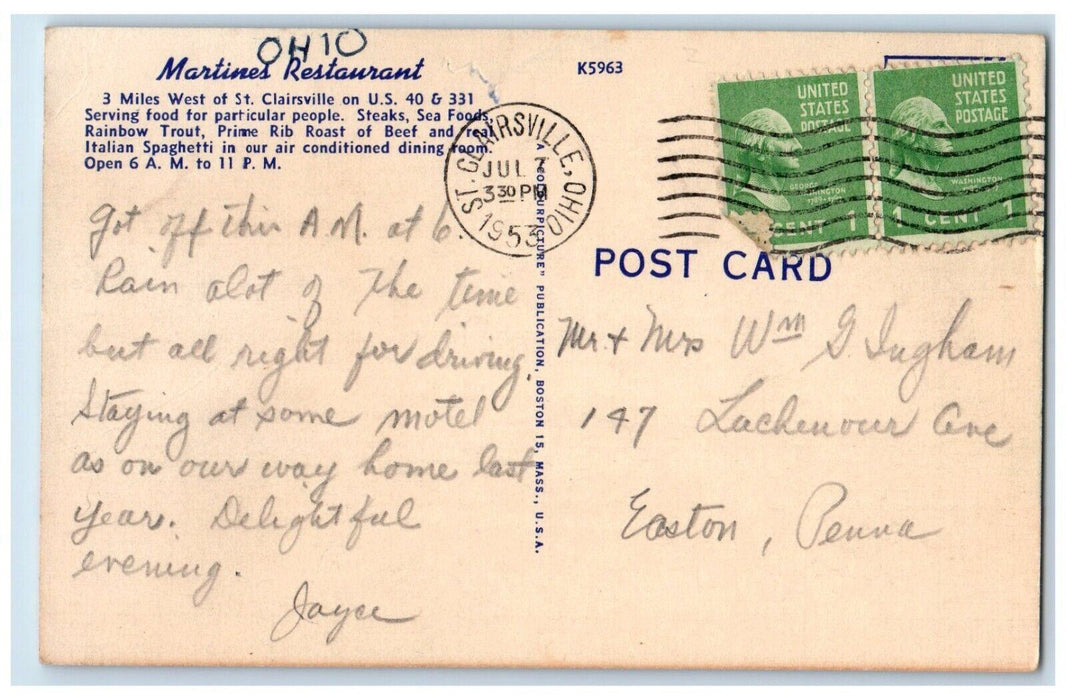 OHIO
Martines Restaurant
3 Miles West of St. Clairsville on U.S. 40 & 331
Serving food for particular people. Steaks, Sea Foods,
Rainbow Trout, Prime Rib Roast of Beef and real
Italian Spaghetti in our air conditioned dining room.
Open 6 A. M. to 11 P. M.
Got off this A.M. at 6.
Rain alot of the time
but all right for driving.
Staying at some motel
as on our way home last
year. Delightful
evening.
Joyce
K5963
ST. CLAIRSVILLE, OHIO
JUL 7
3 30 PM
1953
A "COLOURPICTURE" PUBLICATION, BOSTON 15, MASS., U.S.A.
UNITED
STATES
POSTAGE
GEORGE
WASHINGTON
CENT 1
UNITED
STATES
POSTAGE
WASHINGTON
1 CENT 1
POST CARD
Mr. + Mrs Wm G. Ingham
147 Lachenour Ave
Easton, Penna